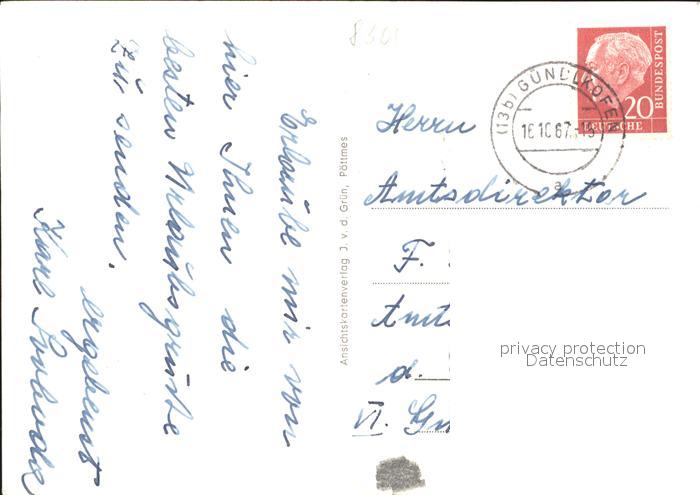 8301
Erlaube mir von
hier Ihnen die
besten Urlaubsgrüße
zu senden.
ergebenst
Karl
Ansichtskartenverlag J. v. d. Grün, Pöttmes
20
DEUTSCHE
BUNDESPOST
(13b) GÜNDLKOFEN
16.10.67.-19
a
Herrn
Amtsdirektor
F.
Amts
d.
VI.
privacy protection
Datenschutz